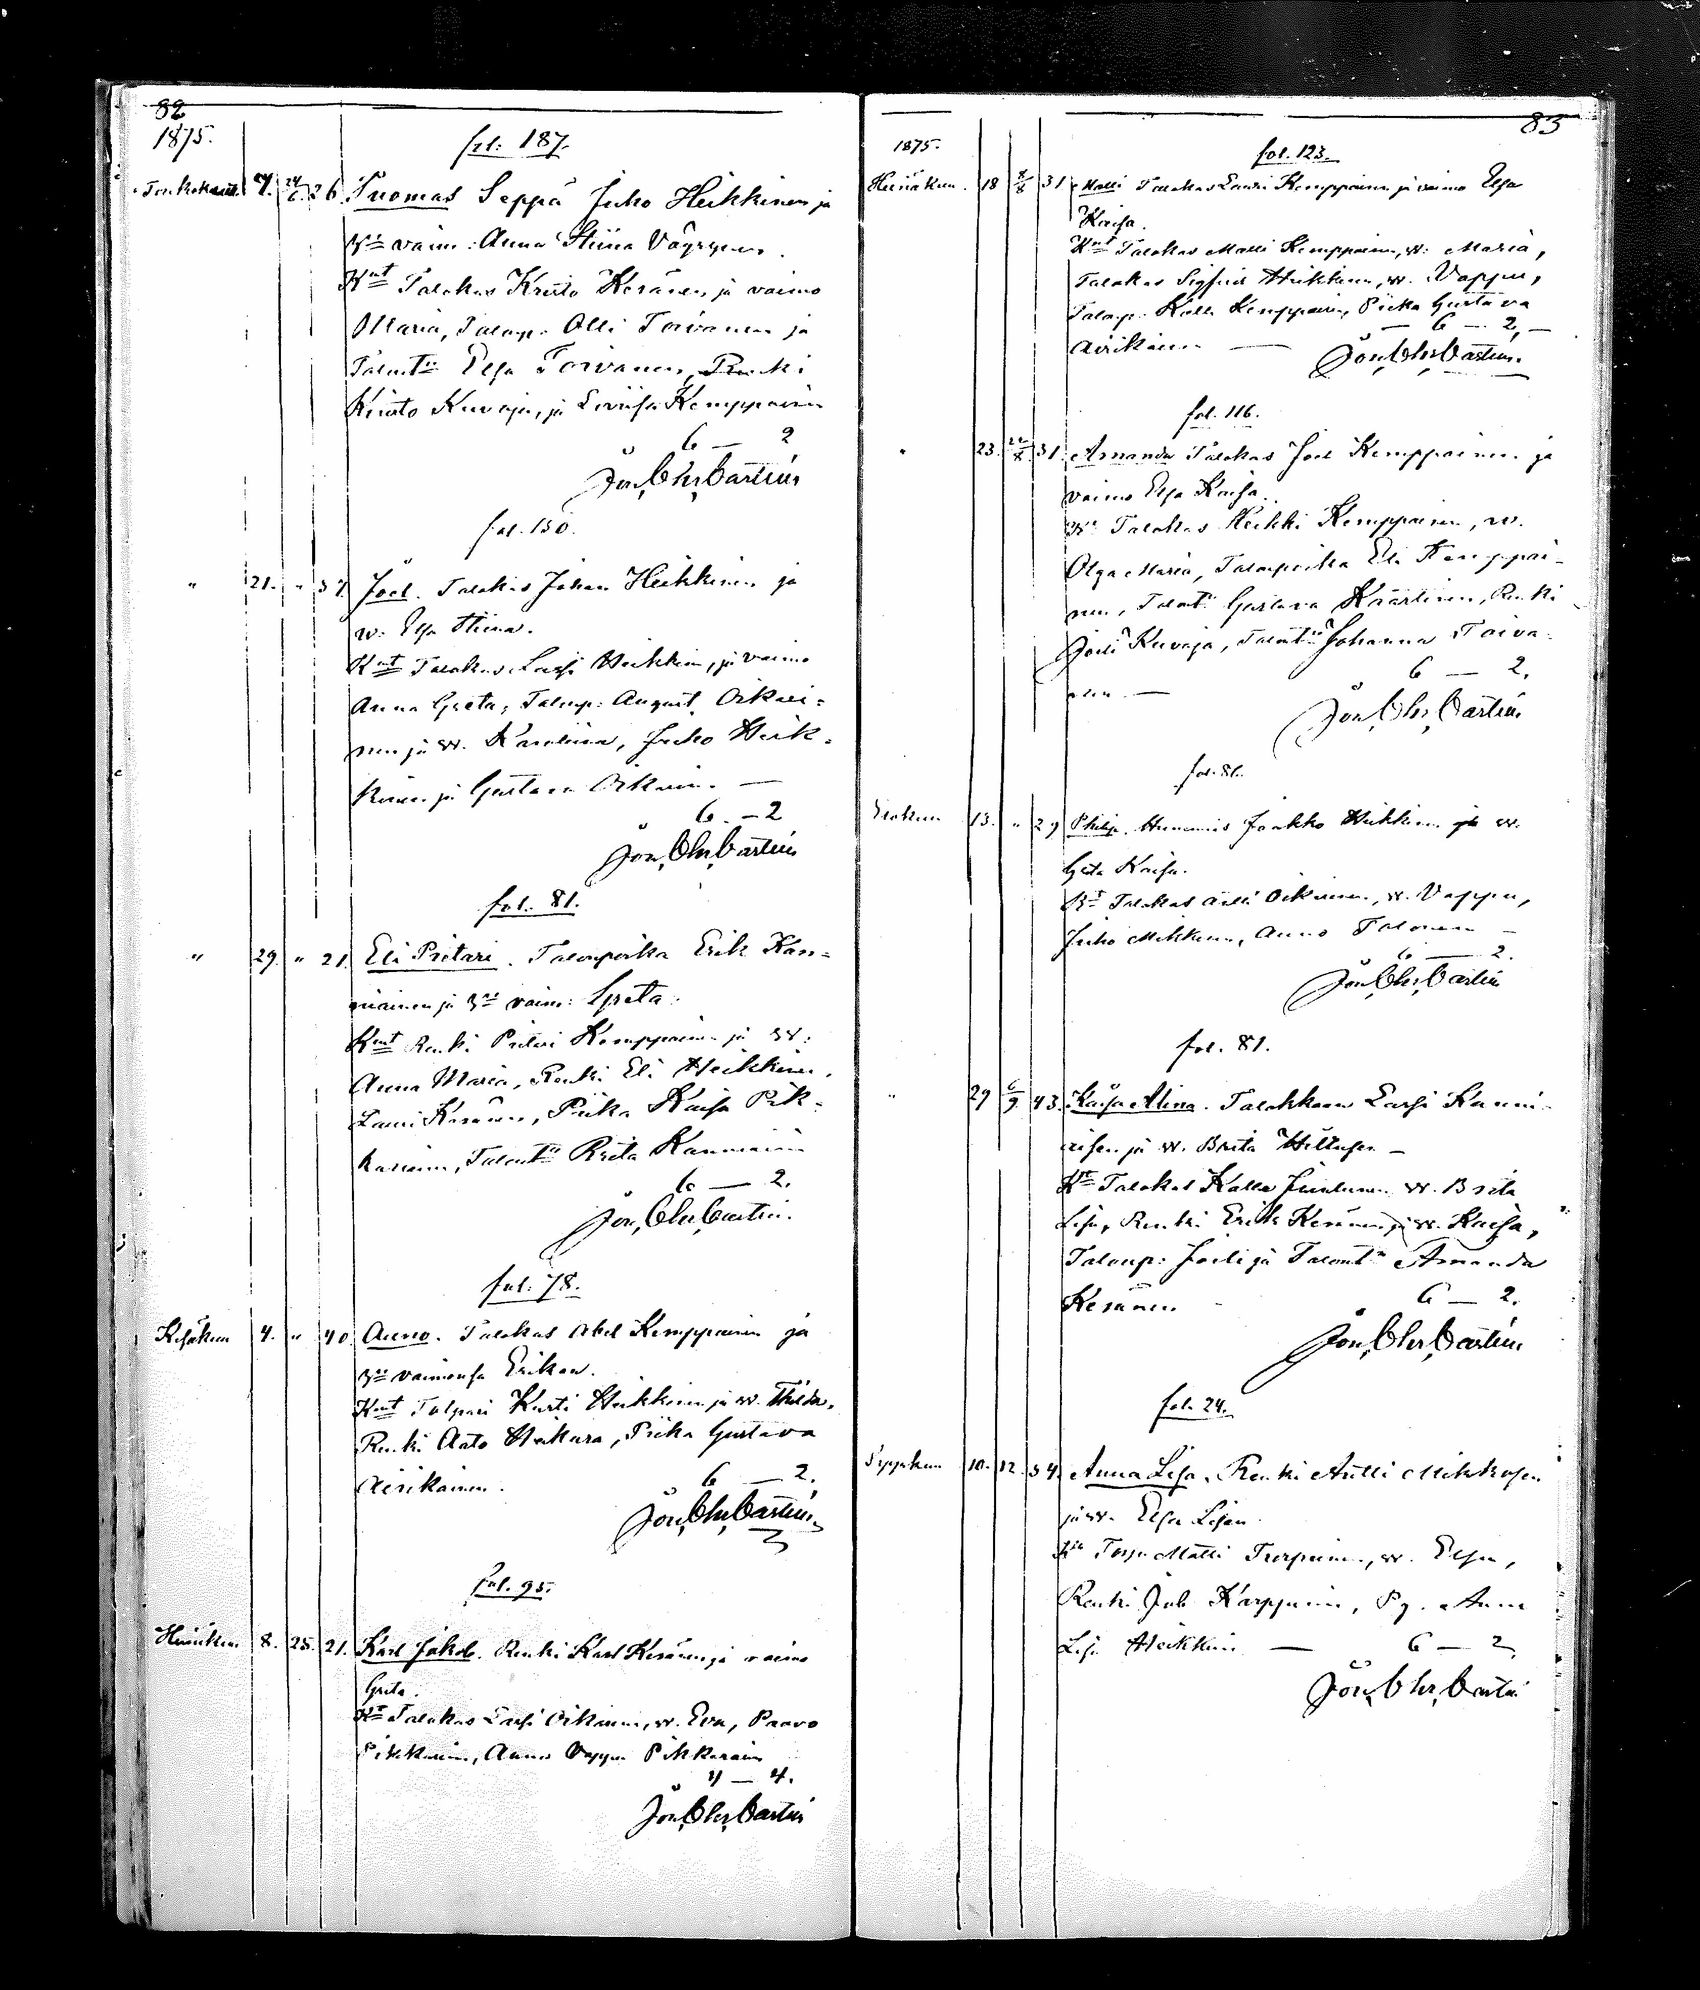 82
1875.
fol. 187.
Toukokuu 7. 24/6 26 Tuomas Seppä Juho Heikkinen ja
vaim: Anna Stiina Väyrynen.
Kmt Talokas Kristo Keränen ja vaimo
Maria, Taloup: Olli Toivanen ja
Talont: Elsa Toivanen, Renki
Kristo Kuvaja, ja Loviisa Kemppainen
6 — 2
Joh. Chr. Castrén
fol. 150.
" 21. " 37 Joel. Talokas Johan Heikkinen ja
w. Elsa Stiina.
Kmt Talokas Lassi Heikkinen, ja vaimo
Anna Greta, Taloup: August Oikari-
nen ja w. Karoliina, Juho Heik-
kinen ja Gustava Oikarin. —
6. — 2
Joh. Chr. Castrén
fol. 81.
" 29. " 21. Eli Pietari. Talonpoika Erik Kan-
niainen ja vaim: Greta.
Kmt Renki Pietari Kemppainen ja w:
Anna Maria, Renki Eli Heikkinen,
Lauri Keränen, Piika Kaisa Pik-
karainen, Talont: Brita Kanniainen
6 — 2.
Joh. Chr. Castrén.
fol. 78.
Kesäkuu 4. " 40 Anna. Talokas Abel Kemppainen ja
vaimonsa Erikan.
Kmt Kusti Heikkinen ja w. Thilda,
Renki Aato Heikura, Piika Gustava
Airikainen.
6 — 2.
Joh. Chr. Castrén
fol. 95.
Heinäkuu 8. 25. 21. Karl Jakob. Renki Karl Keränen ja vaimo
Greta.
Kmt Talokas Lassi Oikarinen, w. Eva, Paavo
Pikkarainen, Anna Vappu Pikkarainen
4 — 4.
Joh. Chr. Castrén
83
1875.
fol. 123.
Heinäkuu 18 31 Malli Talokas Lauri Kemppainen ja vaimo Elsa
Kaisa.
Kmt Talokas Matti Kemppainen, w. Maria,
Talokas Sigfrid Heikkinen, w. Vappu,
Taloup. Kalle Kemppainen, Piika Gustava
Airikainen — 6 — 2, —
Joh. Chr. Castrén.
fol. 116.
" 23. 31. Amanda Talokas Joel Kemppainen ja
vaimo Elsa Kaisa.
Talokas Heikki Kemppainen, w.
Olga Maria, Talonpoika Eli Kemppai-
nen, Talont: Gustava Kaartinen, Renki
Joeli Kuvaja, Talont: Johanna Toiva-
nen — 6 — 2.
Joh. Chr. Castrén
fol. 81.
Elokuu 13. " 29 Philip. Jaakko Heikkinen ja w.
Greta Kaisa.
Talokas Antti Oikarinen, w. Vappu,
Juho Mikkinen, Anna Talonen —
6 — 2.
Joh. Chr. Castrén
fol. 81.
" 29 6/9 43. Kaisa Alina. Talokkaan Lassi Kanni-
aisen ja w. Brita Hiltusen —
Talokas Kalle Juntunen w. Brita
Lisa, Renki Erik Keränen ja w. Kaisa,
Taloup: Joeli ja Talont: Amanda
Keränen 6 — 2.
Joh. Chr. Castrén
fol. 24.
Syyskuu 10. 12. 34. Anna Lisa. Renki Antti Mikkosen
ja w. Elsa Lisan.
Matti Turpeinen, w. Elsa,
Renki Joh. Karppinen, Pg. Anna
Lisa Heikkinen — 6 — 2
Joh. Chr. Castrén